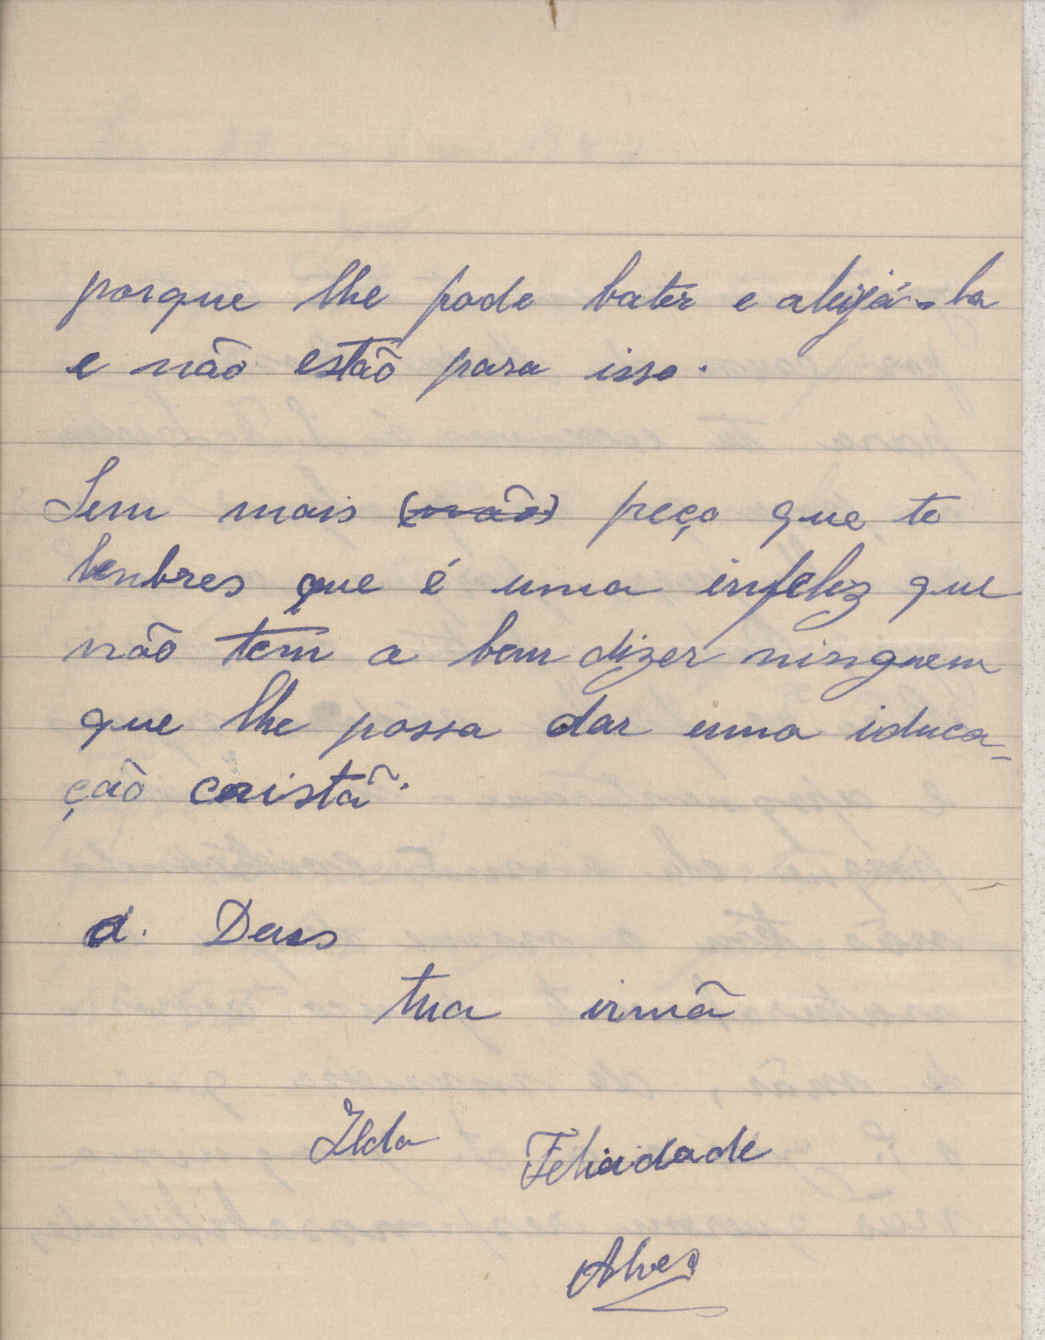 porque lhe pode bater e aleijá-la
e não estão para isso.
Sem mais (não) peço que te
lenbres que é uma infeliz que
não tem a bem dizer ninguem
que lhe possa dar uma iduca-
ção cristã.
a. Deus
tua irmã
Ilda Felicidade
Alves